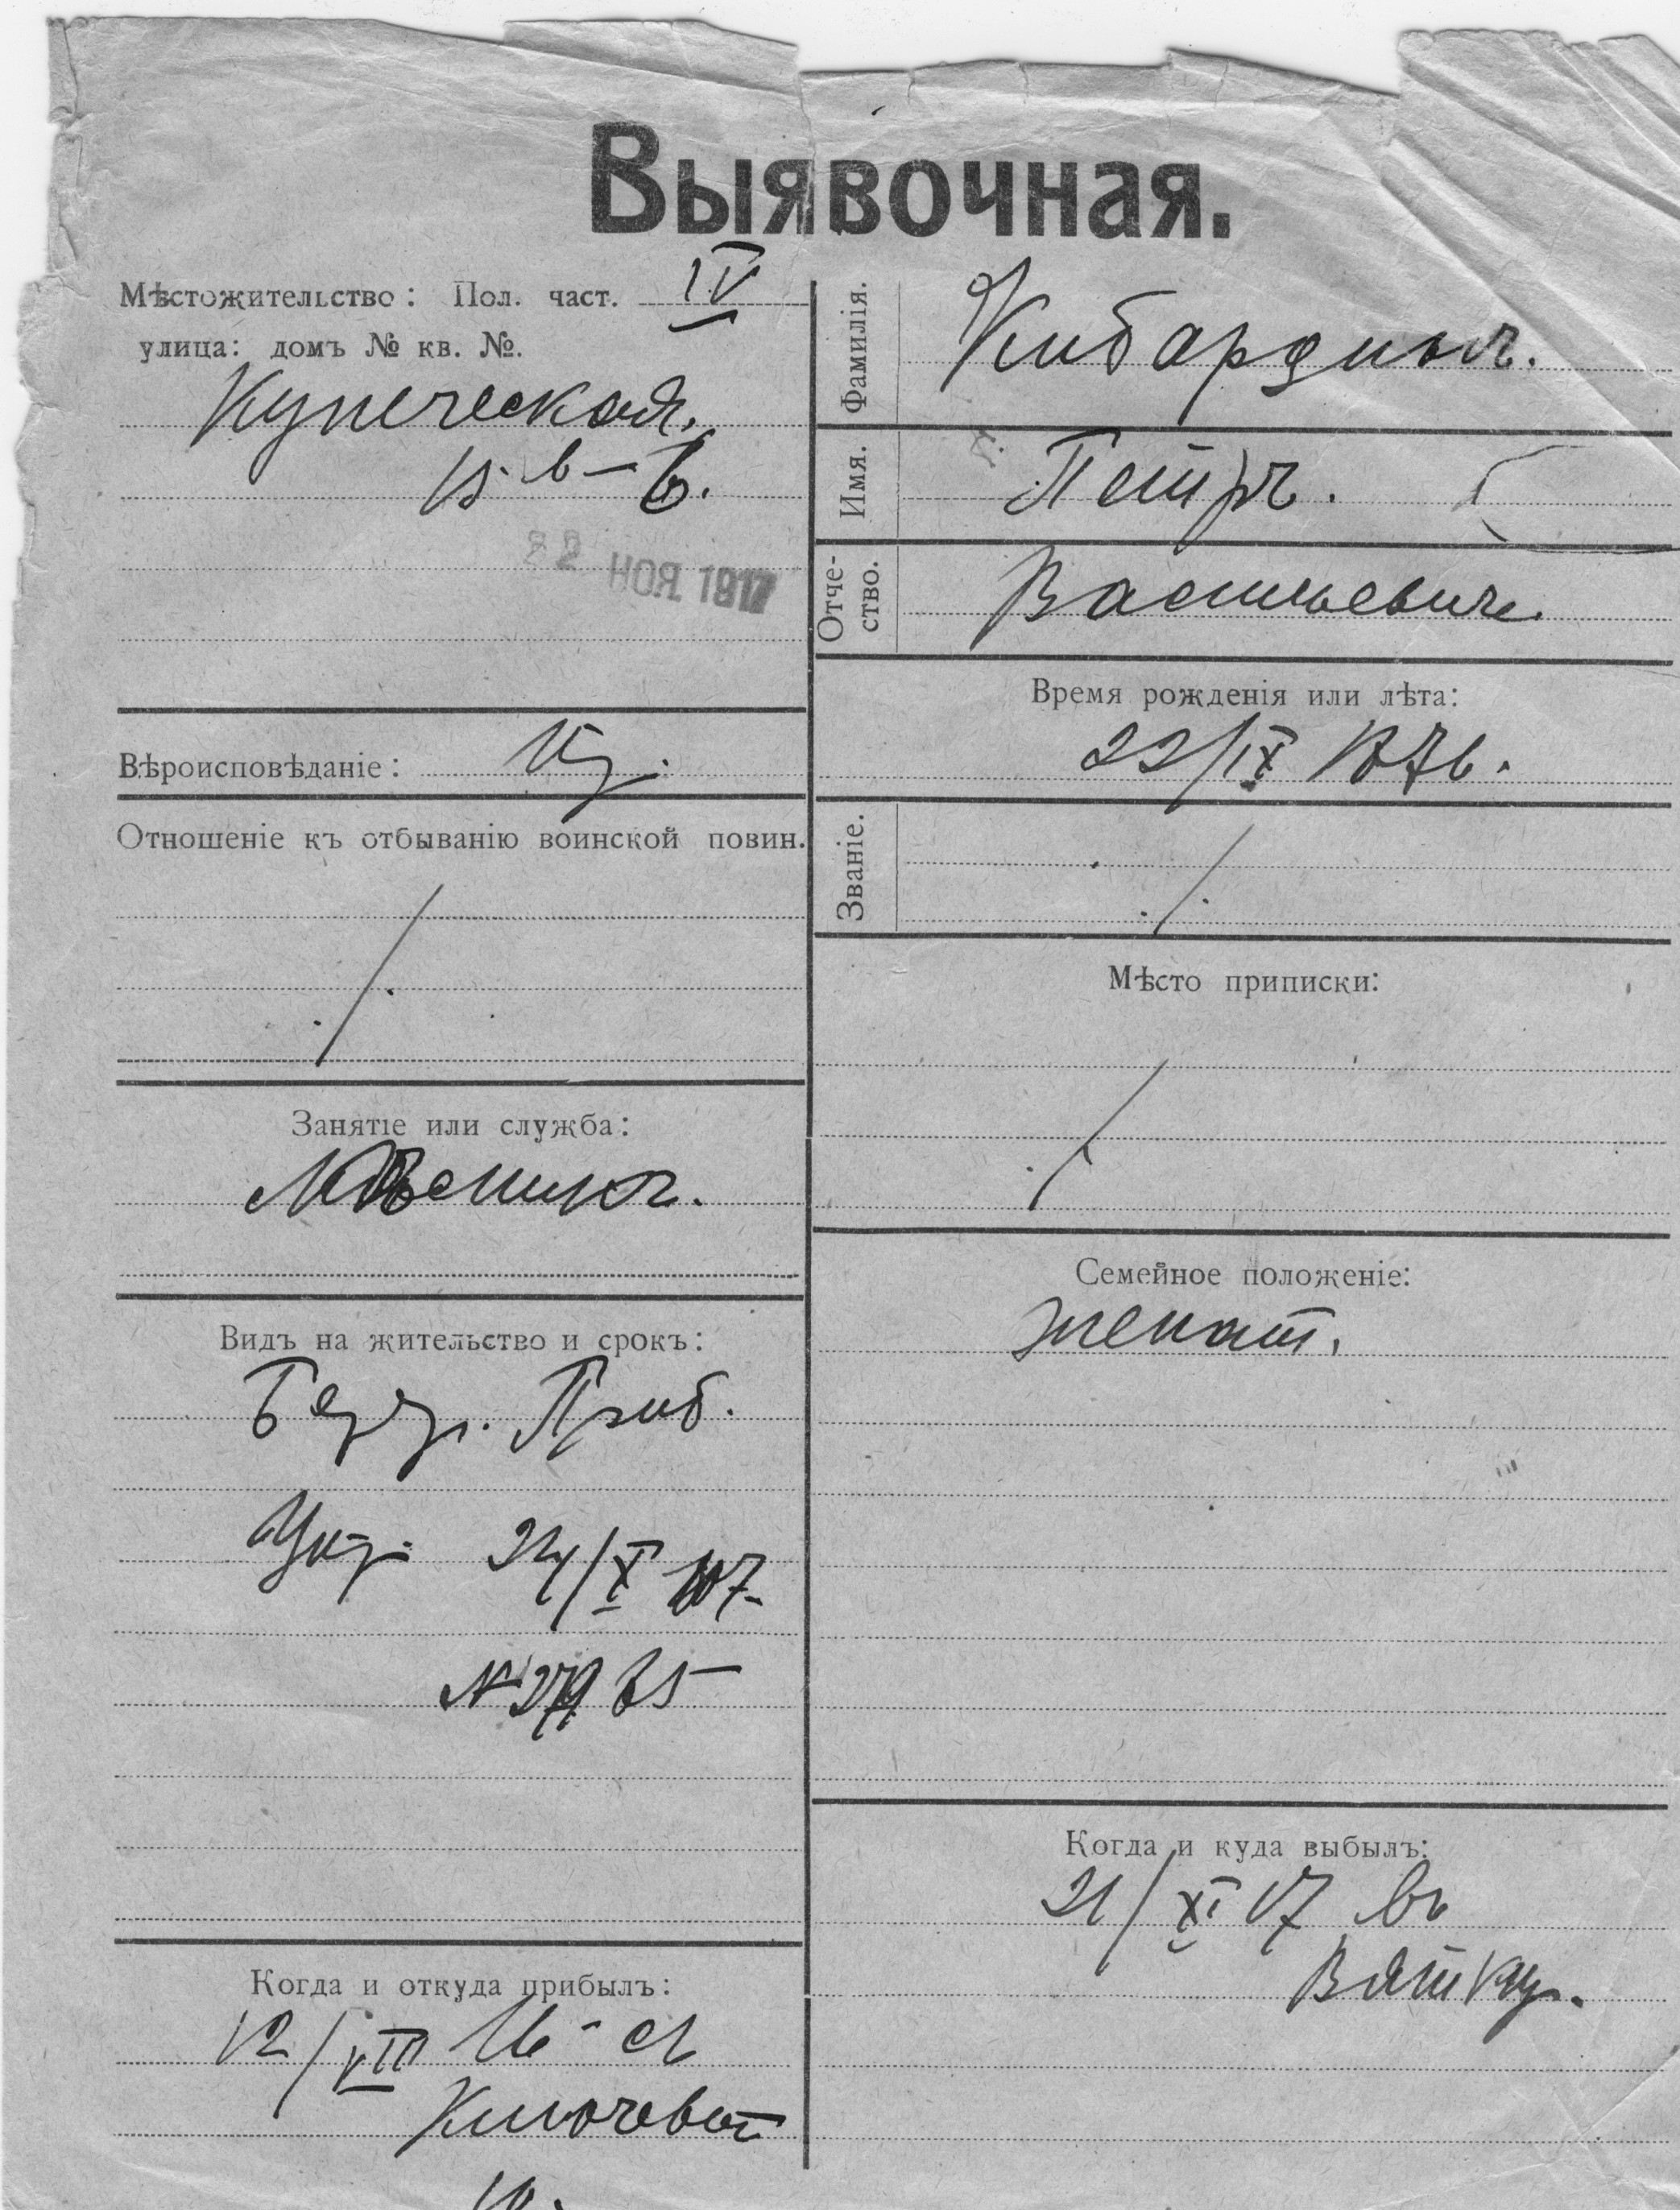 Выявочная.
Мѣстожительство: Пол. част. IV
улица: домъ № кв. №.
Купеческая.
15. в – 6.
22 НОЯ 1917
Вѣроисповѣданіе:
Отношеніе къ отбыванію воинской повин.
Занятіе или служба:
Видъ на жительство и срокъ:
24/X
№
Когда и откуда прибылъ:
12/VIII 16 - съ
Ключевой
Фамилія. Кибардинъ.
Имя. Петръ.
Отче-
ство. Васильевичъ.
Время рожденія или лѣта:
22/IX 1876.
Званіе.
Мѣсто приписки:
Семейное положеніе:
женат.
Когда и куда выбылъ:
21/XI 17 въ
Вятку.